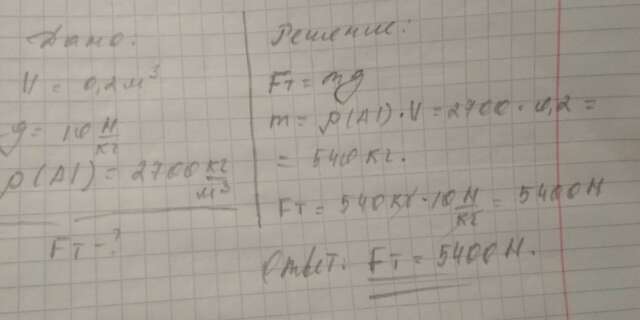 Дано:
V = 0,2 м³
g = 10 Н/кг
ρ(Al) = 2700 кг/м³
Fт - ?
Решение:
Fт = mg
m = ρ(Al) · V = 2700 · 0,2 =
= 540 кг.
Fт = 540 кг · 10 Н/кг = 5400 Н
Ответ. Fт = 5400 Н.